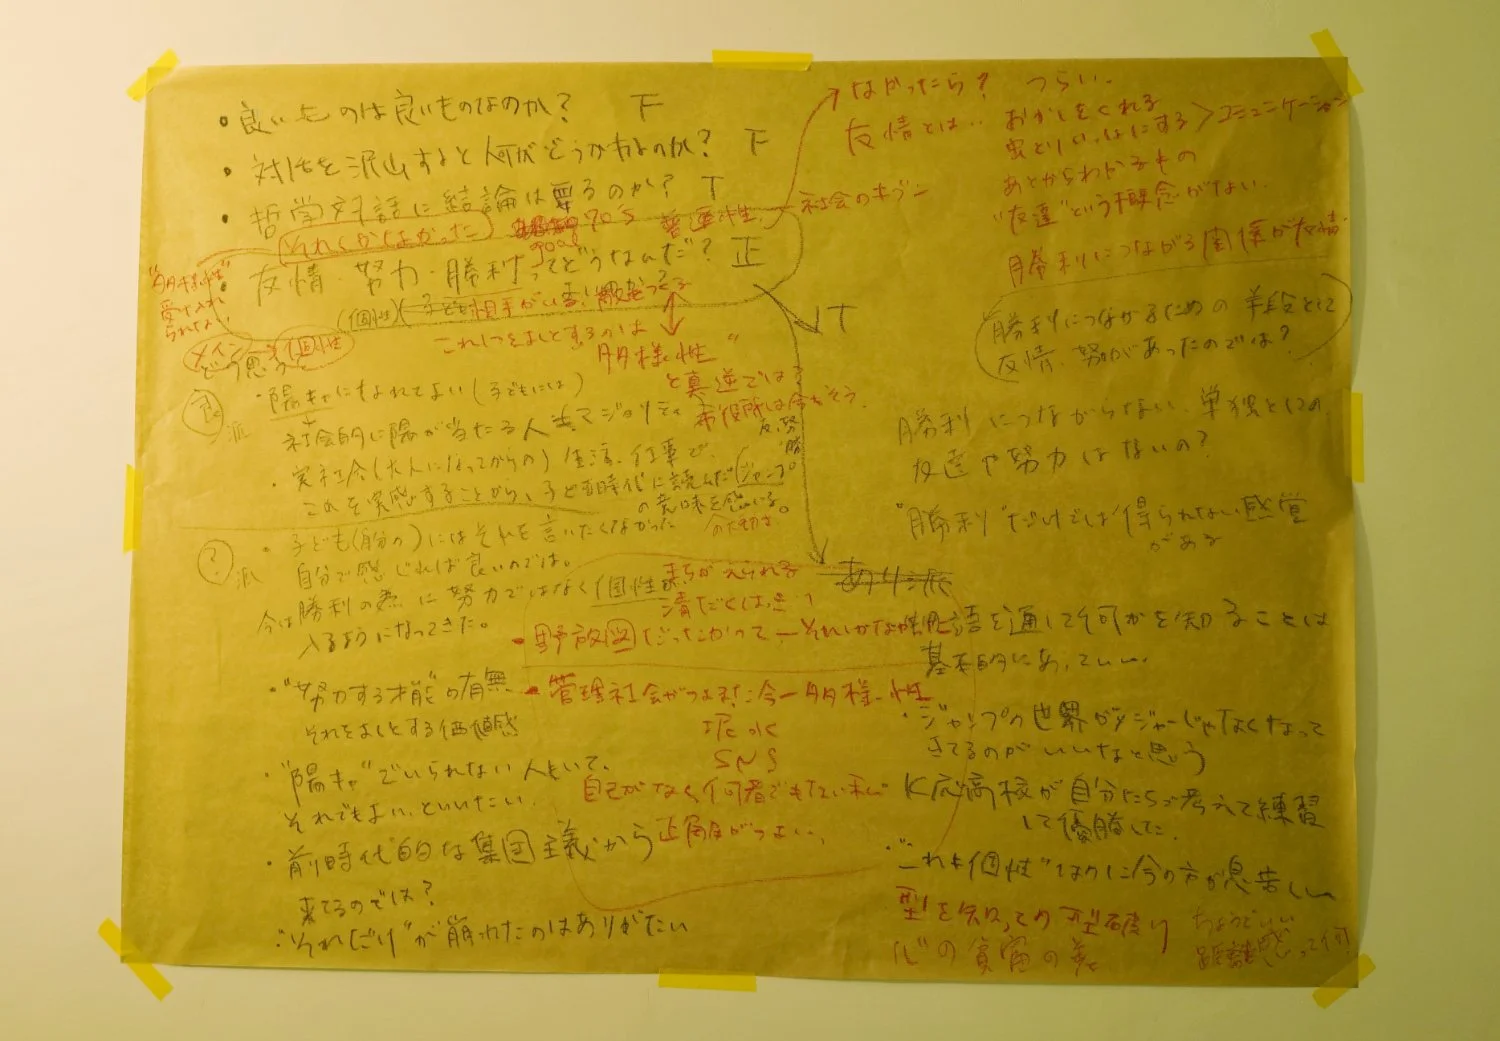 ・良いものは良いものなのか? F
・対話を沢山すると何がどうかわるのか? F
・哲学対話に結論は要るのか? T
それしかなかった
70's 普遍性 社会のキブン
goal
・友情 努力・勝利ってどうなんだ? 正
T
"多様性"
受け入れ
られない
(個性)
相手がいる
これ1つをよしとするのは
多様性"
と真逆では?
市役所は今もそう。
メイン
個性
どう思う
良 派
・陽キャになれてよい(子どもには)
社会的に陽が当たる人
マジョリティ
・実社会(大人になってからの)生活、仕事で、
これを実感することから、子ども時代に読んだ(ジャンプ
の意味を感じる。
友、努
勝
? 派
・子ども(自分の)にはそれを言いたくなかった
自分で感じれば良いのでは。
今は勝利の為に努力ではなく個性が
入るようになってきた。
・"努力する才能"の有無
それをよしとする価値観
・"陽キャ"でいられない人もいて、
それでもよい、といいたい。
・前時代的な集団主義から
来てるのでは?
・"それしか"が崩れたのはありがたい
まちがえられる
清
・野放図だったかつて—それしかなかった
・管理社会がつよまった今—多様性
泥水
SNS
自己がなく何者でもない私
正解がつよい、
なかったら? つらい.
友情とは‥ おかしをくれる
虫とりいっしょにする > コミュニケーション
あとからわかるもの
"友達"という概念がない.
勝利につながる関係が友情
勝利につながるための手段として
友情、努力があったのでは?
勝利につながらない、単独としての
友達や努力はないの?
"勝利"だけでは得られない感覚
がある
あり派
物語を通して何かを知ることは
基本的にあっていい.
・ジャンプの世界がメジャーじゃなくなって
きてるのがいいなと思う
K応高校が自分たちで考えて練習
して優勝した.
・"これも個性"なのに今の方が息苦しい
型を知っての型破り
心の貧富の差
ちょうどいい
距離感って何